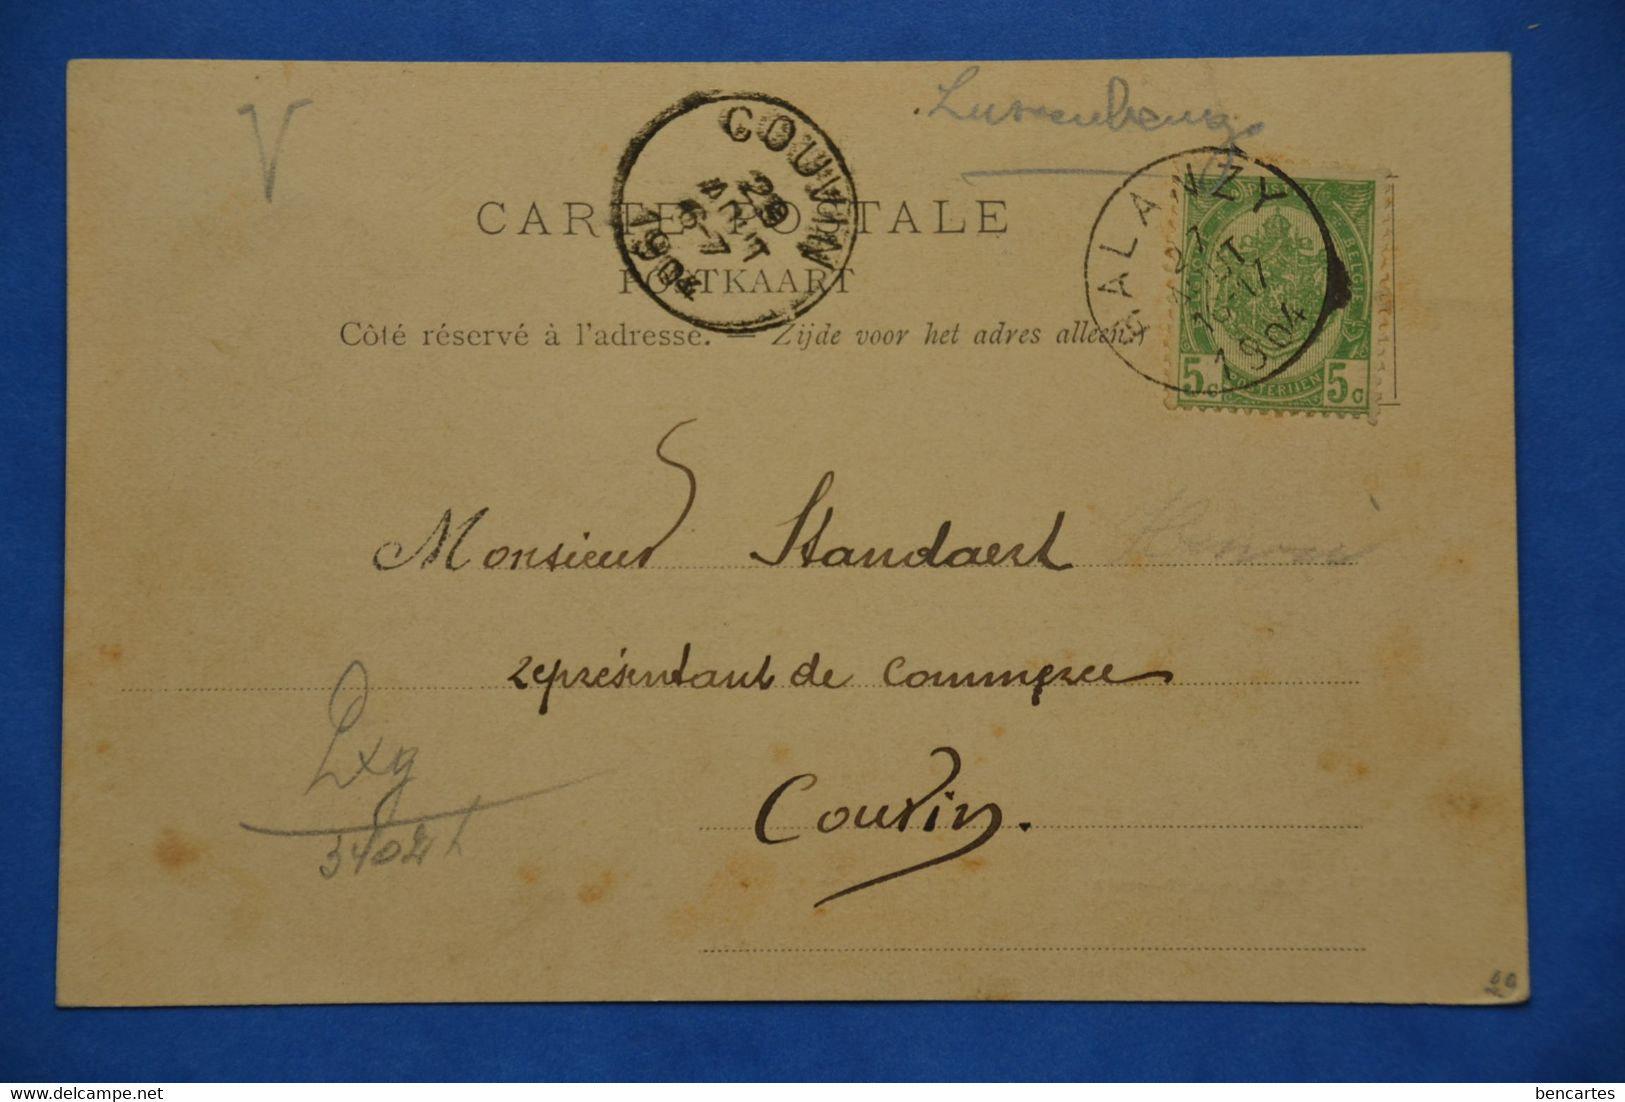 V
Luxembourg
CARTE POSTALE
POSTKAART
Côté réservé à l'adresse. — Zijde voor het adres alleen.
COUVIN
29
AOUT
6-7
1904
SALANZY
27
AOUT
16-17
1904
POSTES
BELGIQUE
5c POSTERIJEN 5c
Monsieur Standaert
représentant de commerce
Couvin.
Lxg
34021
20
bencartes